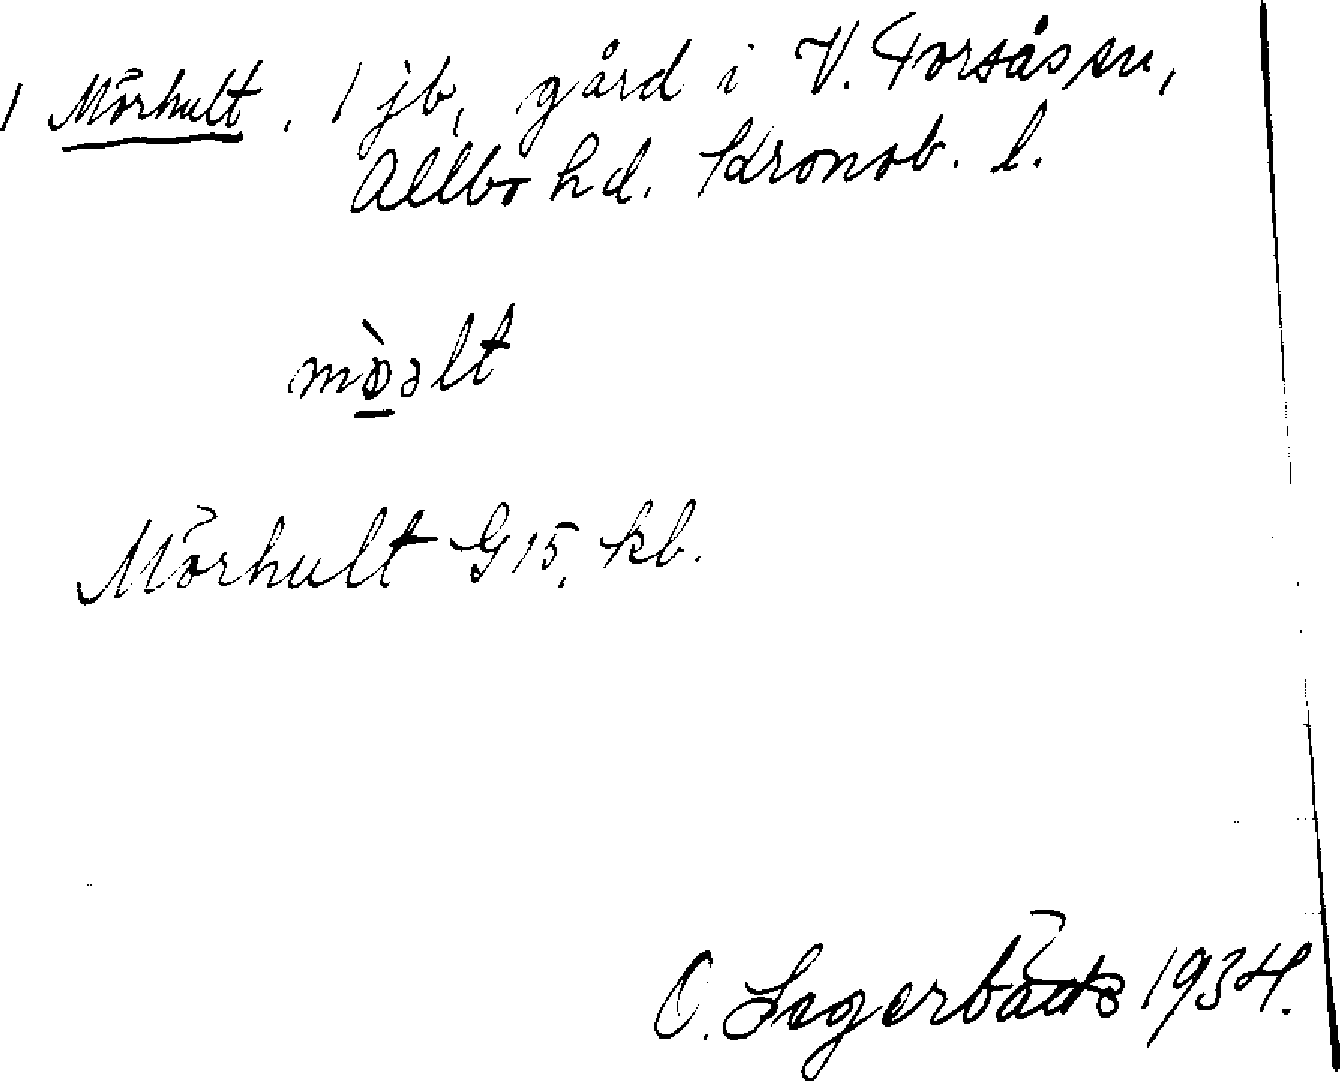 1 Mörhult. 1 jb, gård i V. Torsås sn,
Allbo hd. Kronob. l.
mö̀əlt
Mörhult G 15, kb.
O. Lagerbäck 1934.